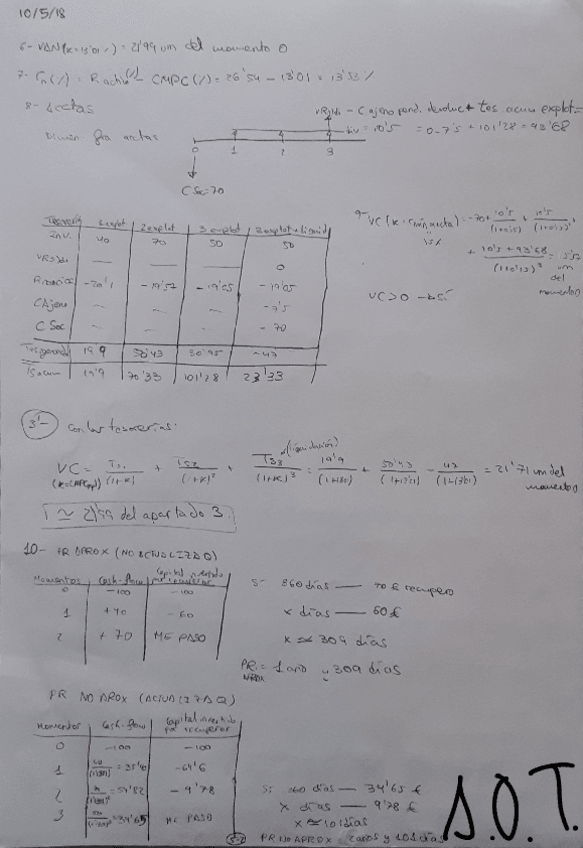 10/5/18
6- VAN (k=13'01%) = 21'99 um del momento 0
7- rn(%) = Ractivo(%) - CMPC(%) = 26'54 - 13'01 = 13'53%
8- Accttas
VR3Ns - C ajeno pend. devoluc + tes acum explot =
Div = 10'5 = 0-7'5 + 101'28 = 93'68
0 1 2 3
C Soc = 70
Tesorería 1 explot 2 explot 3 explot 3 explot + liquid
Inv. 40 70 50 50
VR3Ns — — — 0
-20'1 -19'57 -19'05 -19'05
C Ajeno - - - -7'5
C Soc - - - -70
Tes generada 19'9 50'43 30'95 -47
Ts acum 19'9 70'33 101'28 23'33
9- VC (k = rmín accta) = -70 + 10'5/(1+0'15) + 10'5/(1+0'15)² + (10'5 + 93'68)/(1+0'15)³ = 5'57 um del momento 0
15%
VC>0 → sí
3'- Con las tesorerías:
(liquidación)
VC = Ts1/(1+k) + Ts2/(1+k)² + Ts3/(1+k)³ = 19'9/(1+1301) + 50'43/(1+1301)² - 47/(1+1301)³ = 21'71 um del momento 0
(k=CMPCap)
≃ 21'99 del apartado 3
10- PR APROX (NO ACTUALIZADO)
Momentos Cash-flow Capital invertido por recuperar
0 -100 -100
1 +40 -60
2 +70 ME PASO
Si 360 días — 70 € recupero
x días — 60 €
x ≃ 309 días
PR APROX = 1 año y 309 días
PR NO APROX (ACTUALIZADO)
Momentos Cash-flow Capital invertido por recuperar
0 -100 -100
1 40/(1+1301) = 35'40 -64'6
2 70/(1+1301)² = 54'82 -9'78
3 50/(1+1301)³ = 34'65 ME PASO
Si 360 días — 34'65 €
x días — 9'78 €
x ≃ 101 días
PR NO APROX 2 años y 101 días
S.O.T.